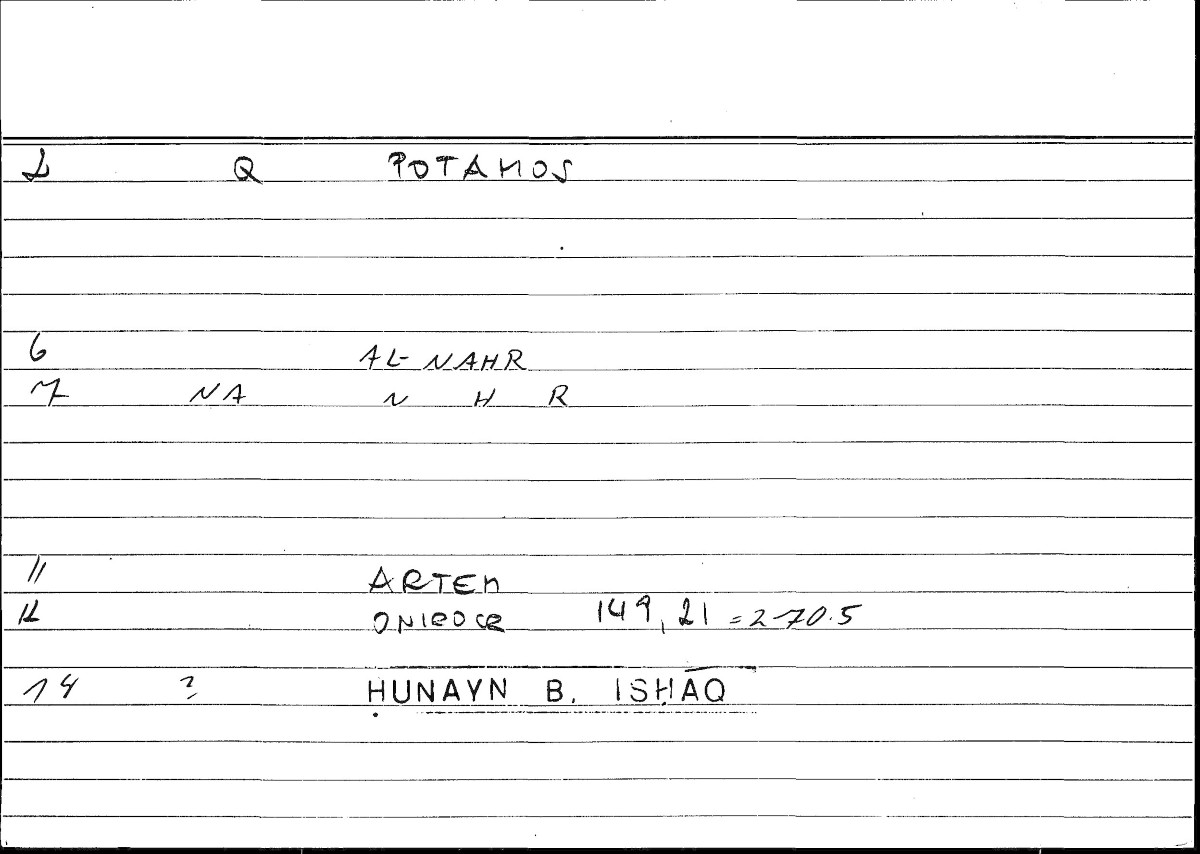 1 Q POTAMOS
6 AL-NAHR
7 NA N H R
11 ARTEM
12 ONIROCR 149,21 =270.5
14 ? ḤUNAYN B. ISḤĀQ